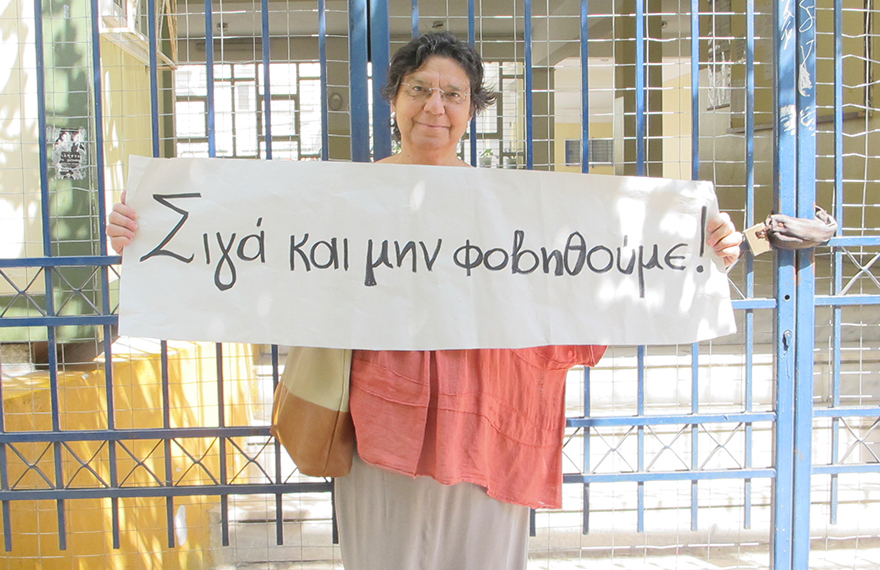 Σιγά και μην φοβηθούμε!